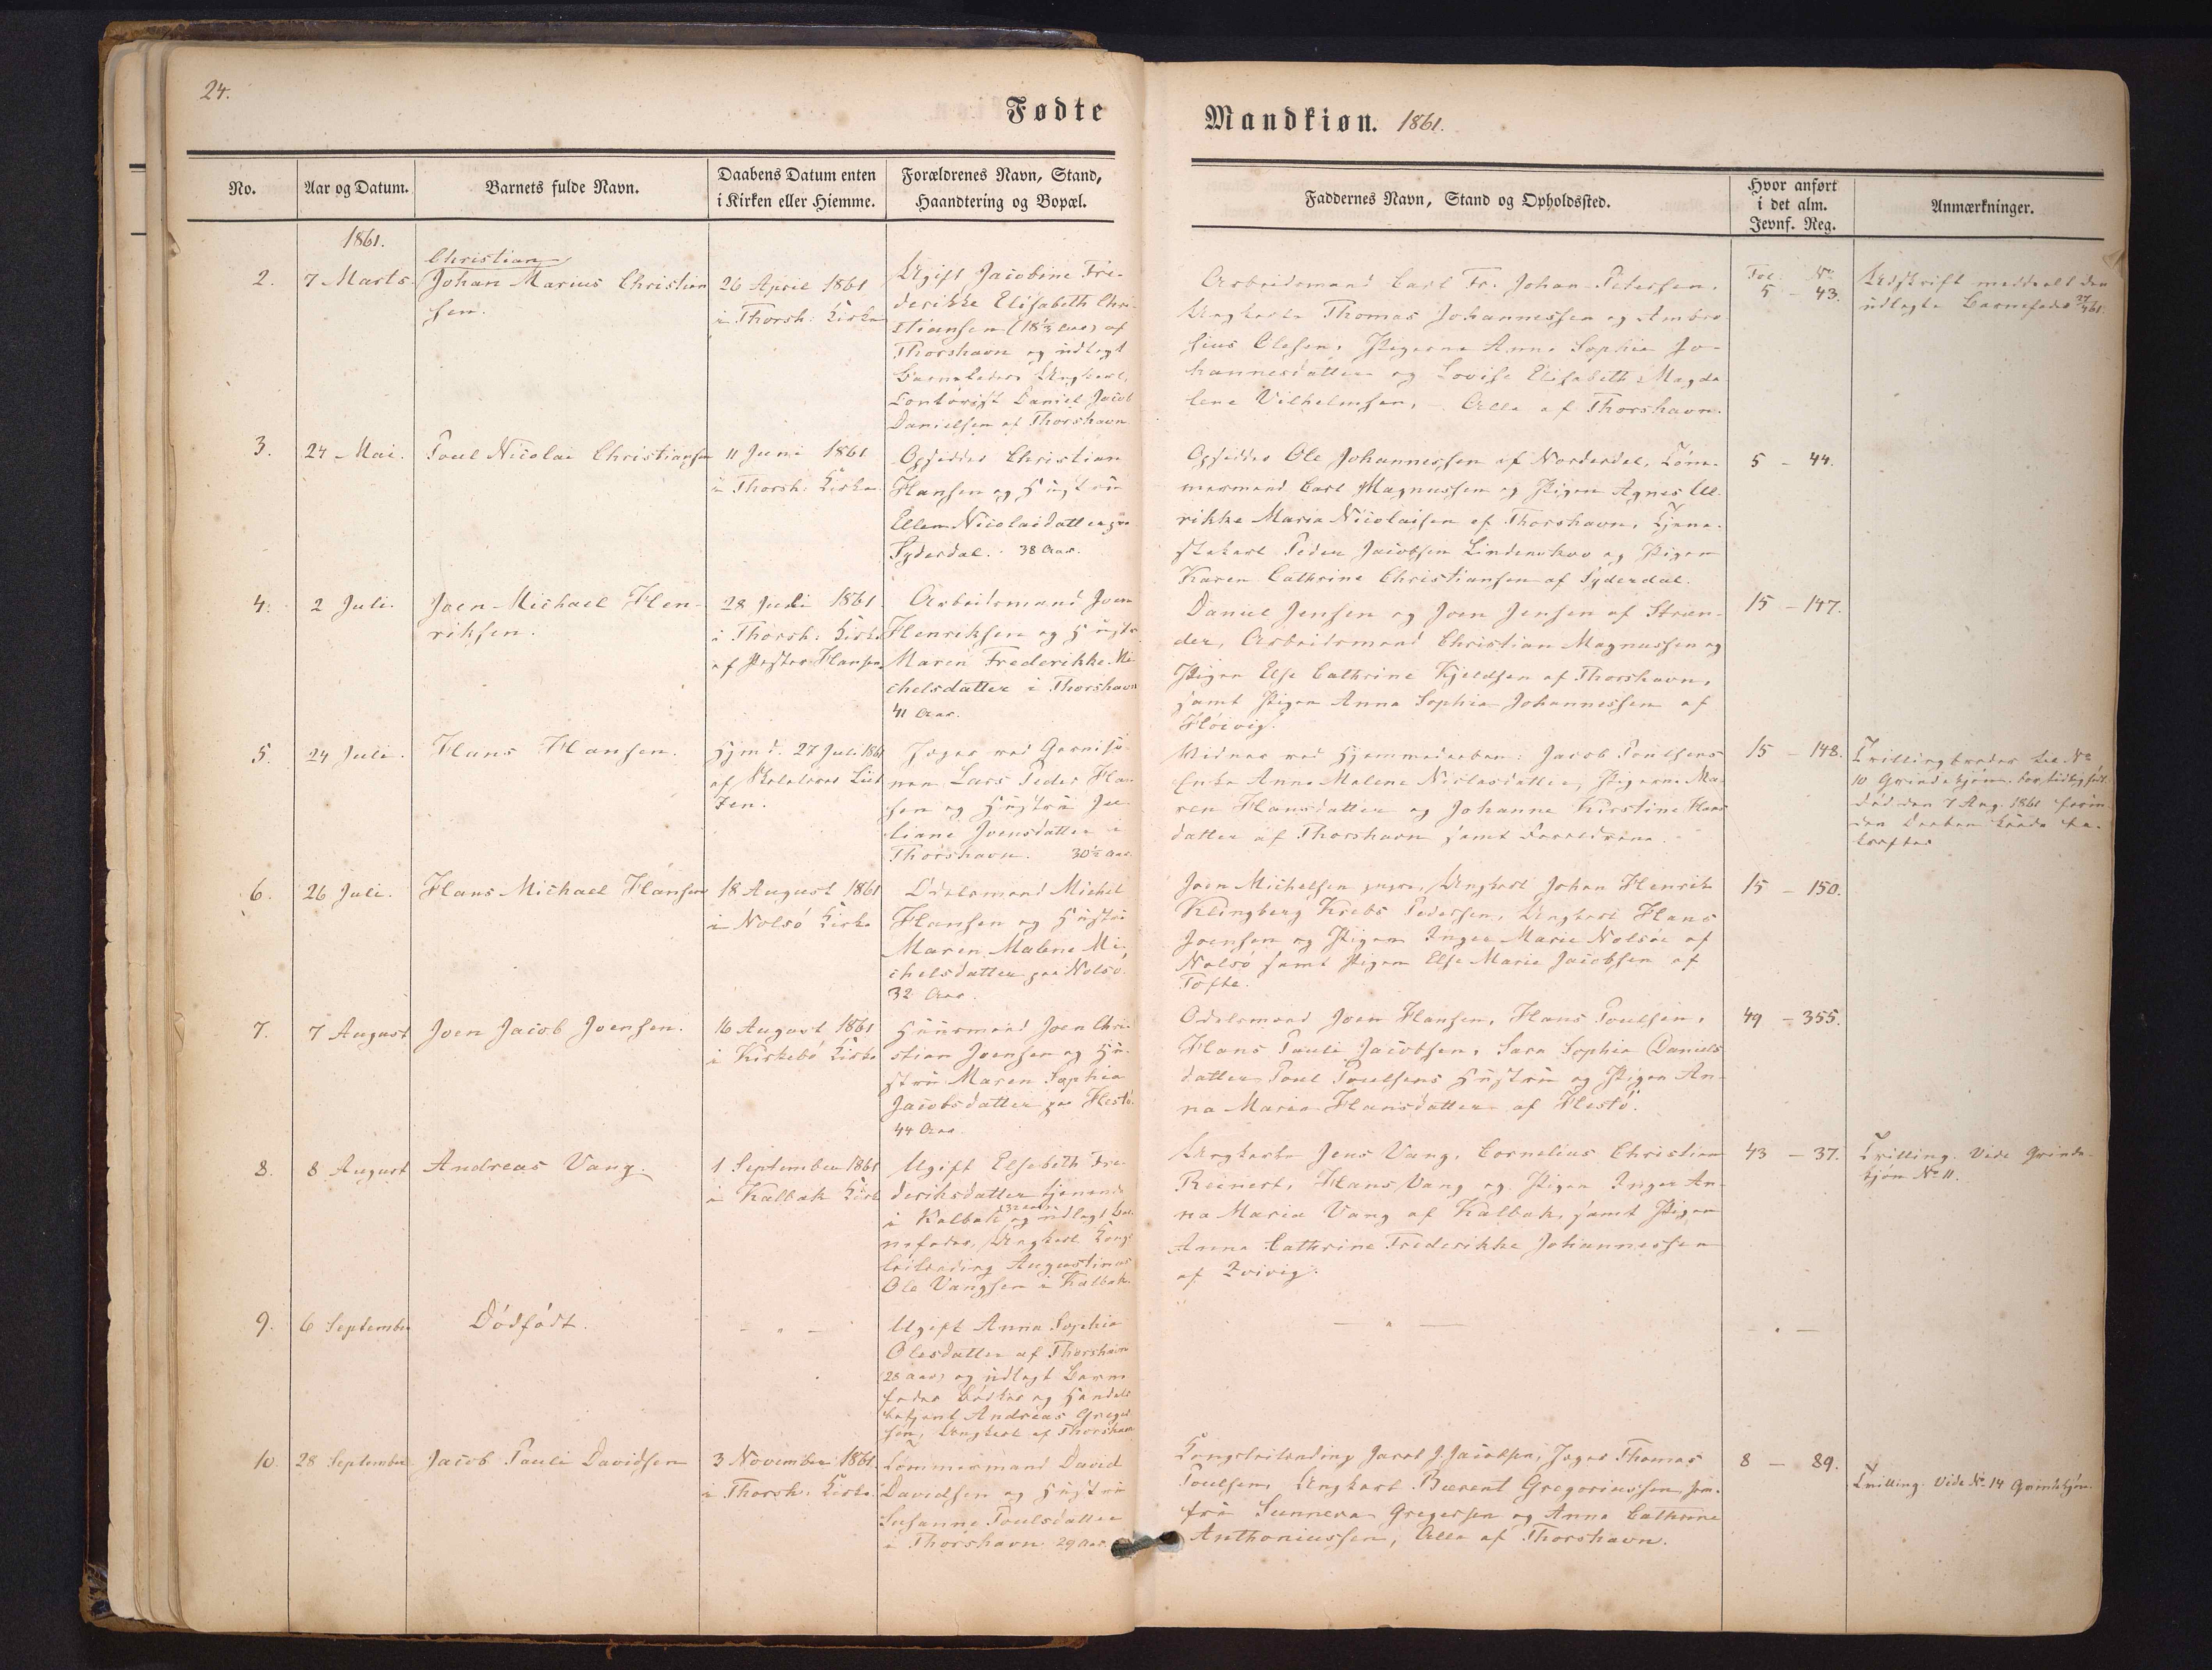 24.
Fødte
Mandkiøn. 1861.
No.
Aar og Datum.
Barnets fulde Navn.
Daabens Datum enten
i Kirken eller Hiemme.
Forældrenes Navn, Stand,
Haandtering og Bopæl.
Faddernes Navn, Stand og Opholdssted.
Hvor anført
i det alm.
Jevnf. Reg.
Anmærkninger.
1861.
2.
7 Marts.
Christian
Johan Marius Christian
sen.
26 April 1861
i Thorsh: Kirke
Ugift Jacobine Fre-
derikke Elisabeth Chri-
stiansen (18½ Aar) af
Thorshavn og udlagt
Barnefader Ungkarl,
Contorist Daniel Jacob
Danielsen af Thorshavn
Arbeidsmand Carl Fr. Johan Petersen,
Ungkarle Thomas Johannessen og Ambro-
sius Olesen, Pigerne Anna Sophie Jo-
hannesdatter og Lovise Elisabeth Magda
lene Vilhelmsen, Alle af Thorshavn.
Fol. No
5 - 43.
Udskrift meddeelt den
udlagte Barnefader 27/4 61.
3.
24 Mai.
Poul Nicolai Christiansen
11 Juni 1861
i Thorsh: Kirke
Opsidder Christian
Hansen og Hustru
Ellen Nicolaidatter paa
Syderdal. 38 Aar.
Opsidder Ole Johannessen af Norderdal, Tøm-
mermand Carl Magnussen og Pigen Agnes Ul-
rikke Maria Nicolaisen af Thorshavn, Tjene-
stekarl Peder Jacobsen Lindenskov og Pigen
Karen Cathrine Christiansen af Syderdal.
5 - 44.
4.
2 Juli.
Joen Michael Hen-
riksen.
28 Juli 1861
i Thorsh: Kirke
af Pastor Hansen
Arbeidsmand Joen
Henriksen og Hustr.
Maren Frederikke Mi-
chelsdatter i Thorshavn
41 Aar.
Daniel Jensen og Joen Jensen af Stran-
der, Arbeidsmand Christian Magnussen og
Pigen Else Cathrine Kjeldsen af Thorshavn,
samt Pigen Anna Sophie Johannessen af
Hoivig.
15 - 147.
5.
24 Juli.
Hans Hansen.
Hjmd. 27 Juli 1861
af Skolelærer Lüt
zen.
Jæger ved Garniso-
nen Lars Peder Han
sen og Hustru Ju-
liane Joensdatter i
Thorshavn. 30½ Aar.
Vidner ved Hjemmedaaben: Jacob Poulsens
Enke Anne Malene Niclasdatter, Pigerne Ma-
ren Hansdatter og Johanne Kirstine Hans
datter af Thorshavn samt Forældrene.
15 - 148.
Tvillingbroder til No
10 Qvindekjøn. For tidlig født
død den 7 Aug. 1861 førin-
den Daaben kunde be-
kræftes
6.
26 Juli.
Hans Michael Hansen
18 August 1861
i Nolsø Kirke
Odelsmand Michel
Hansen og Hustru
Maren Malene Mi-
chelsdatter paa Nolsø.
32 Aar.
Joen Michelsen junior, Ungkarl Johan Henrik
Klingberg Krebs Pedersen, Ungkarl Hans
Joensen og Pigen Inger Marie Nolsøe af
Nolsø samt Pigen Else Marie Jacobsen af
Tofte.
15 - 150.
7.
7 August
Joen Jacob Joensen.
16 August 1861
i Kirkebø Kirke
Huusmand Joen Chri-
stian Joensen og Hu-
stru Maren Sophie
Jacobsdatter paa Hestø.
44 Aar.
Odelsmand Joen Hansen, Hans Poulsen,
Hans Pauli Jacobsen, Sara Sophie Daniels
datter Poul Poulsens Hustru og Pigen An-
na Marie Hansdatter af Hestø.
49 - 355.
8.
8 August
Andreas Vang.
1 September 1861
i Kalbak Kirke
Ugift Elsebeth Fre-
deriksdatter tjenende
i Kalbak og udlagt Bar-
nefader, Ungkarl Kong-
leilænding Augustinus
Ole Vangsen i Kalbak.
Ungkarle Jens Vang, Cornelius Christian
Reinert, Hans Vang og Pigen Inger An-
na Marie Vang af Kalbak, samt Pigen
Anna Cathrine Frederikke Johannessen
af Qvivig.
43 - 37.
Tvilling. Vide Qvinde-
kjøn No 11.
9.
6 September
Dødfødt.
- " -
Ugift Anna Sophie
Olesdatter af Thorshavn
(28 Aar) og udlagt Barne
fader Bødker og Handels
betjent Andreas Greger
sen, Ungkarl af Thorshavn
- " -
" -
10.
28 September
Jacob Pauli Davidsen
3 November 1861.
i Thorsh. Kirke.
Tømmermand David
Davidsen og Hustru
Susanne Poulsdatter
i Thorshavn 29 Aar.
Kongsleilænding Jacob J. Jacobsen, Jæger Thomas
Poulsen, Ungkarl Bærent Gregoriussen, Jom-
fru Sunneva Gregersen og Anna Cathrine
Anthoniussen, Alle af Thorshavn.
8 - 89.
Tvilling. Vide No 14 Qvindekjøn.